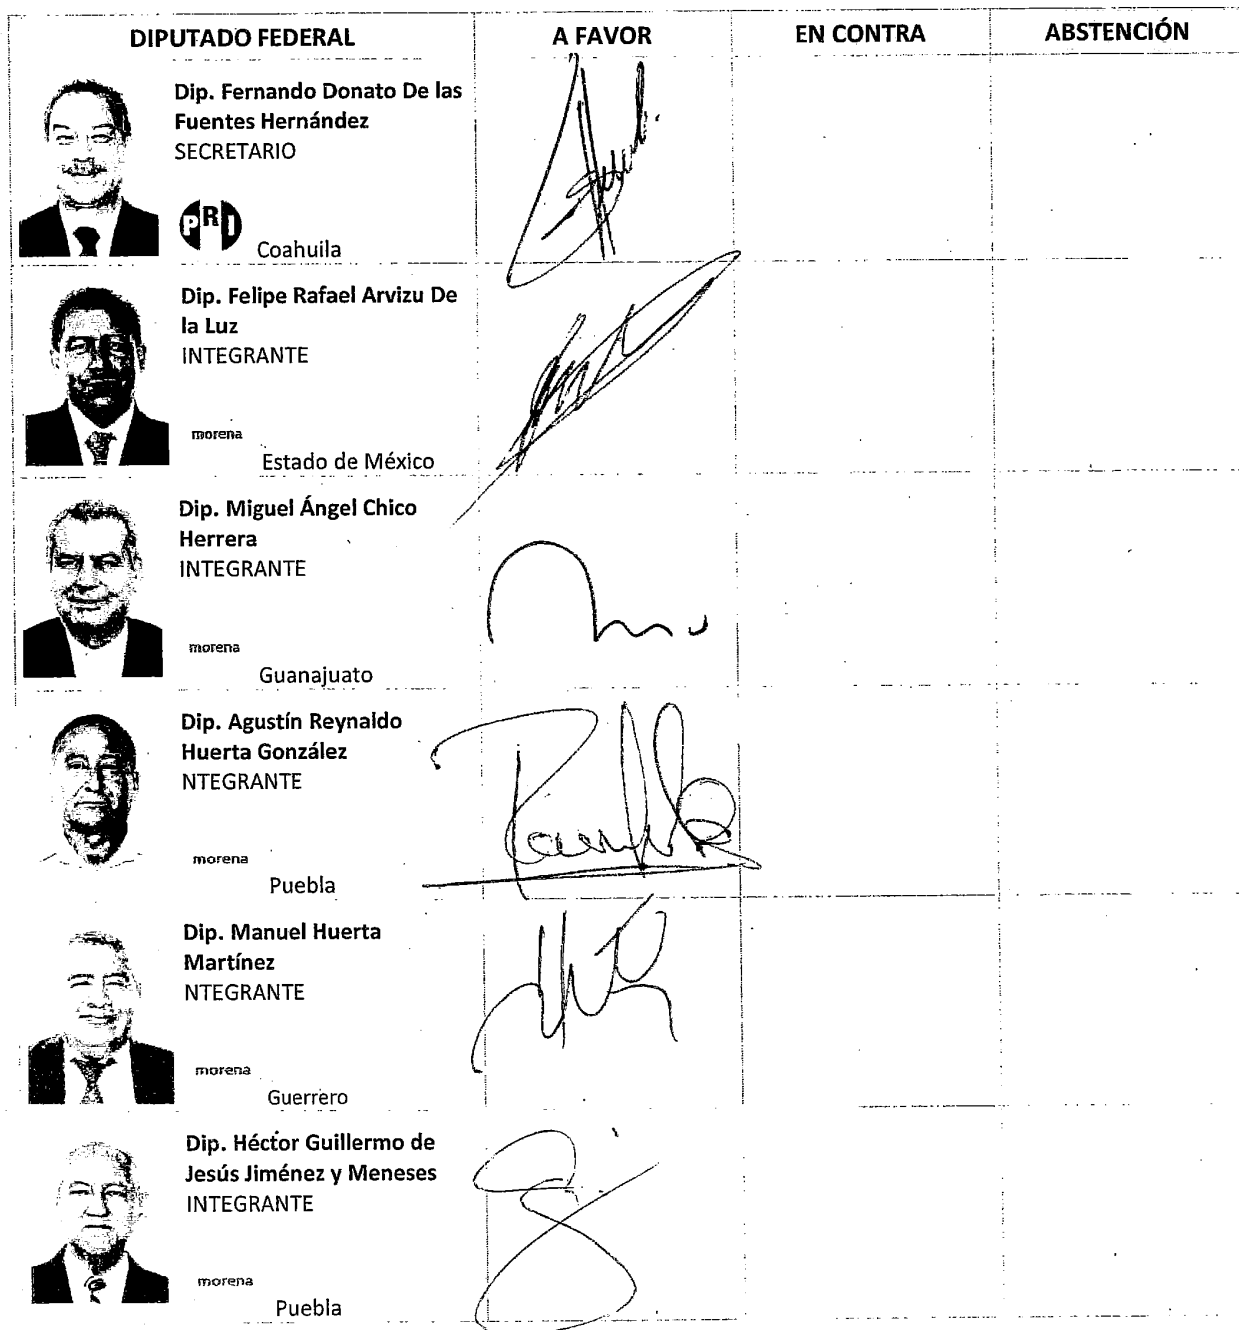 DIPUTADO FEDERAL A FAVOR EN CONTRA ABSTENCIÓN
Dip. Fernando Donato De las
Fuentes Hernández
SECRETARIO
PRI
Coahuila
Dip. Felipe Rafael Arvizu De
la Luz
INTEGRANTE
morena
Estado de México
Dip. Miguel Ángel Chico
Herrera
INTEGRANTE
morena
Guanajuato
Dip. Agustín Reynaldo
Huerta González
NTEGRANTE
morena
Puebla
Dip. Manuel Huerta
Martínez
NTEGRANTE
morena
Guerrero
Dip. Héctor Guillermo de
Jesús Jiménez y Meneses
INTEGRANTE
morena
Puebla